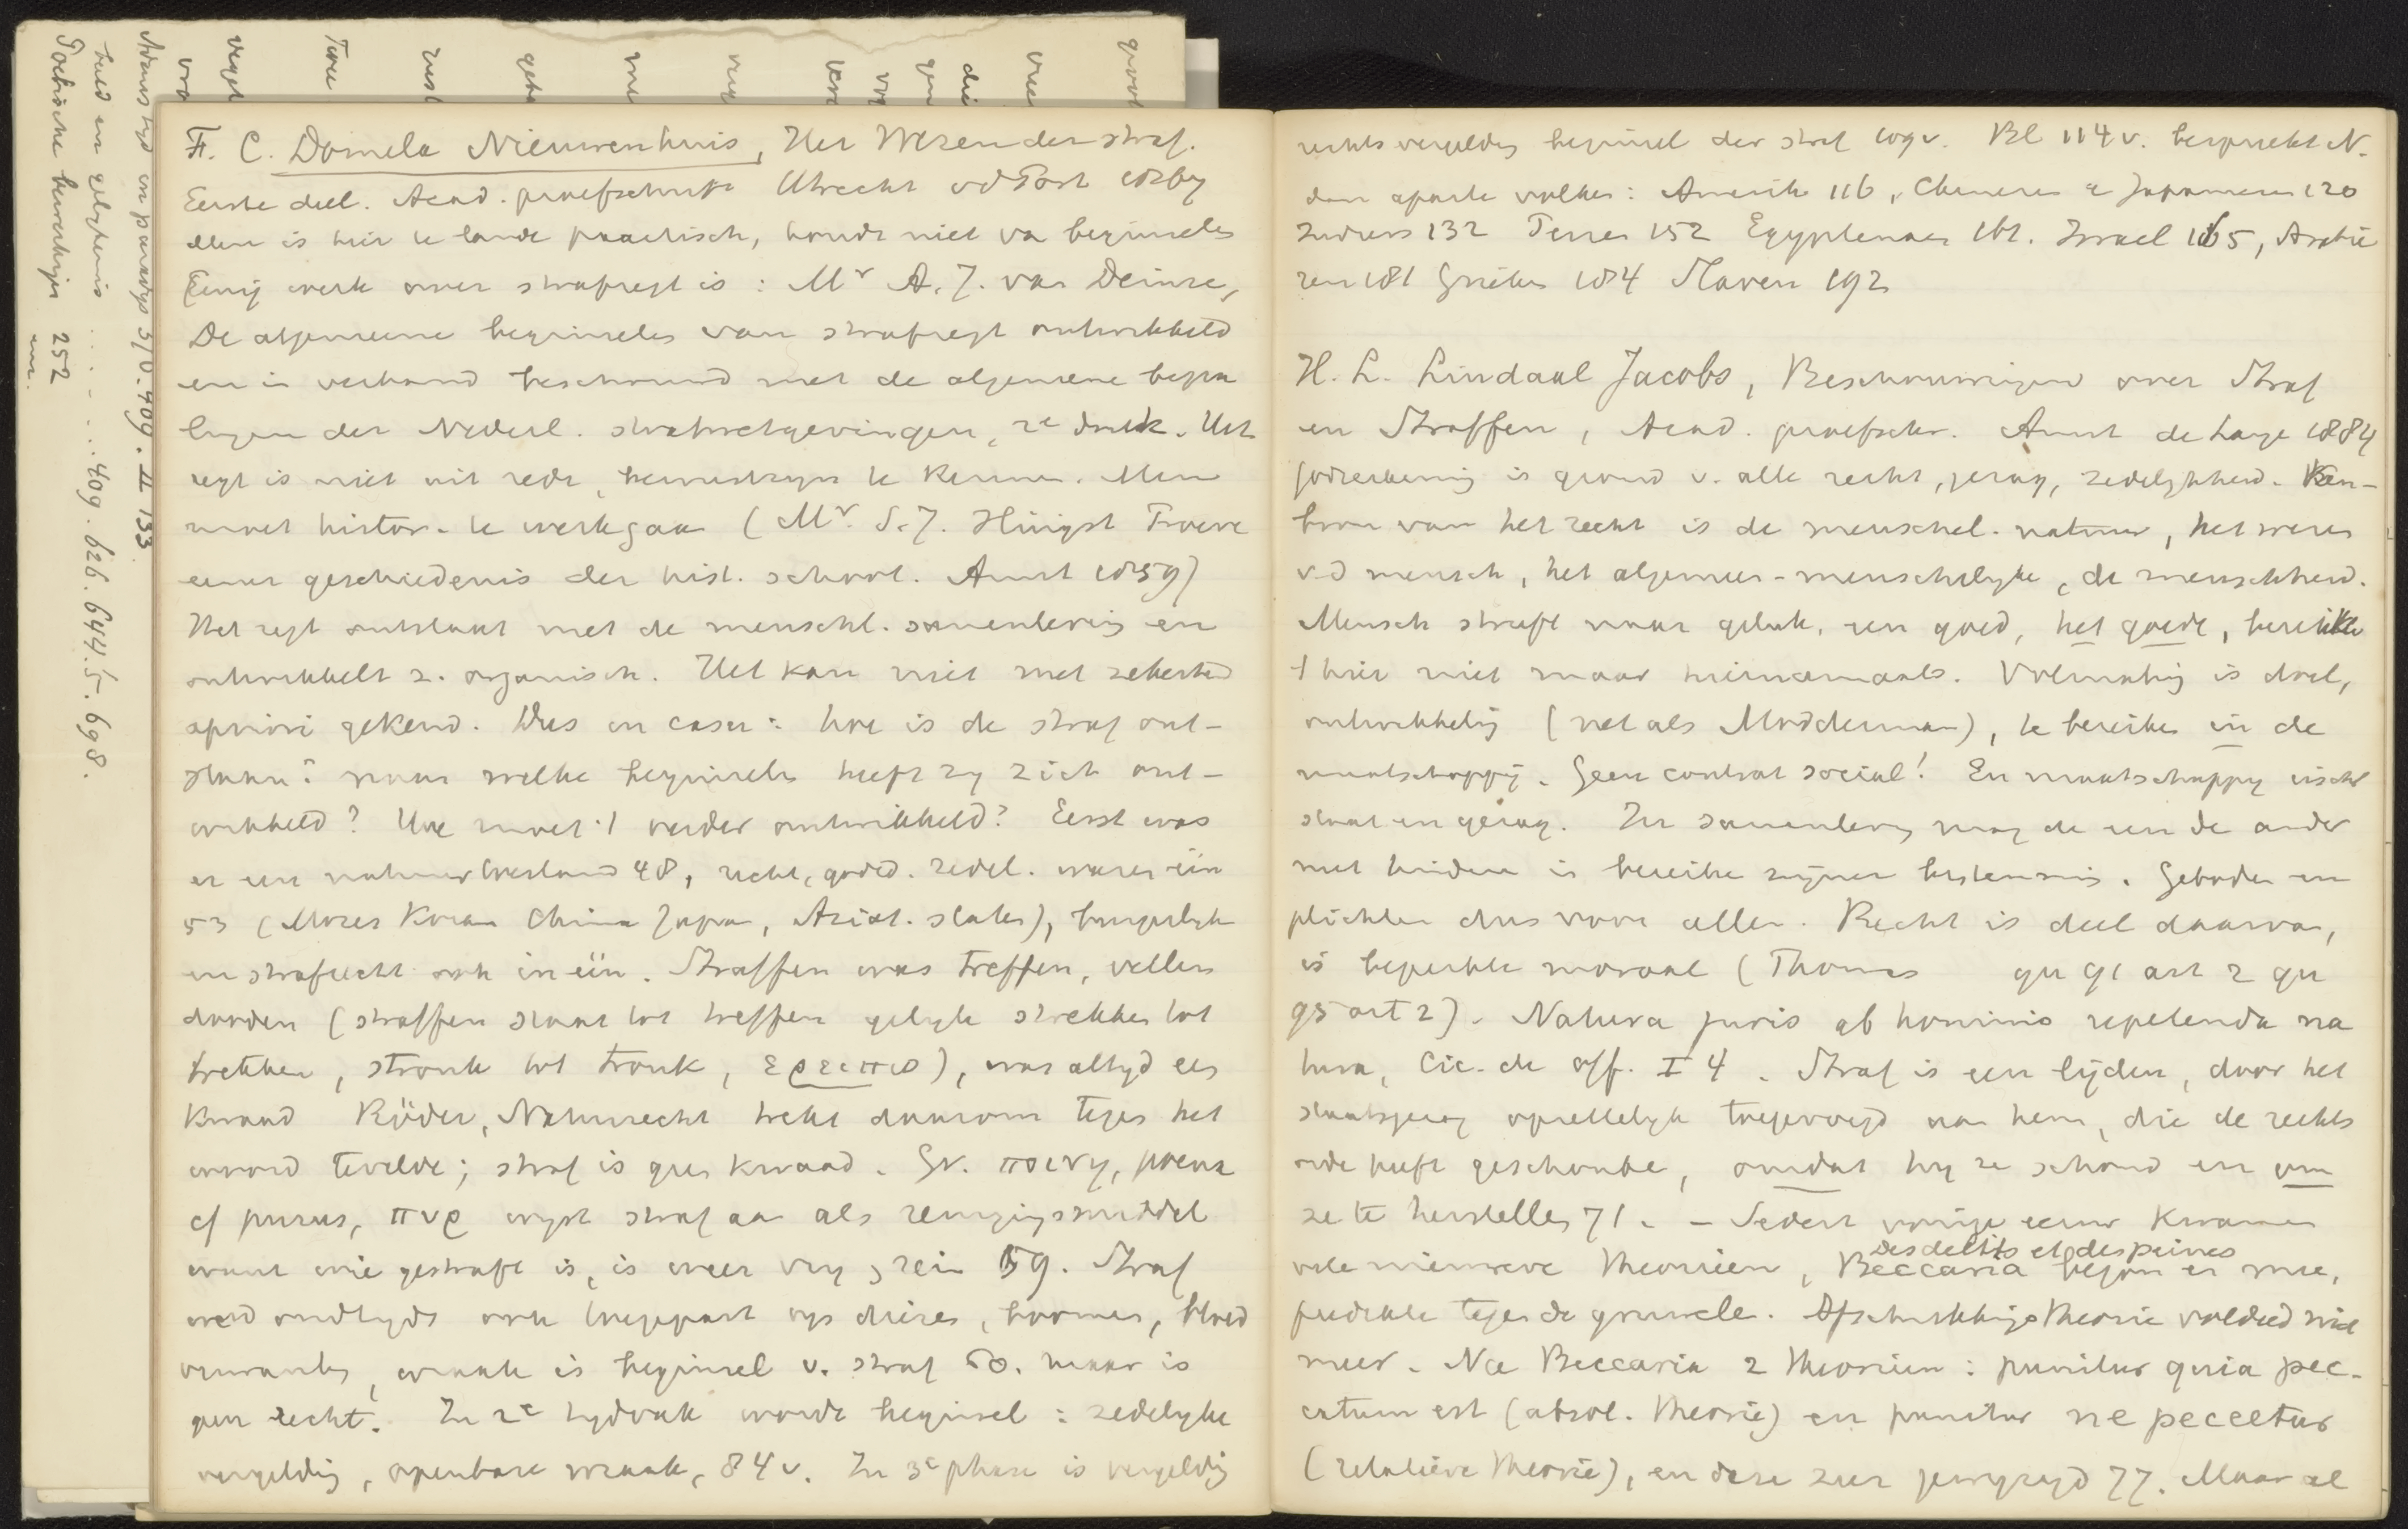 F. C. Domela Nieuwenhuis, Het Wezen der straf.
Eerste deel. Acad. proefschrift Utrecht vd Post
Men is hier te lande practisch, houdt niet va beginselen
Eenig werk over strafregt is: Mr A. J. van Deinse,
De algemeene beginselen van strafregt ontwikkeld
en in verband beschouwd met de algemeene bepa
lingen der Nederl. strafwetgevingen, 2e druk. Het
regt is niet uit rede, bewustzyn te kennen. Men
moet histor. te werk gaan (Mr. S. J. Hingst Proeve
eener geschiedenis der hist. school. Amst 1859)
Het regt ontstaat met de menschl. samenleving en
ontwikkelt z. organisch. Het kan niet met zekerheid
apriori gekend. Dus in casu: hoe is de straf ont-
staan? naar welke beginselen heeft zy zich ont-
wikkeld? Hoe moet 't verder ontwikkeld? Eerst was
er een natuurtoestand 48, recht, godsd. zedel. waren één
53 (Mozes Koran China Japan, Aziat. staten), burgerlyk
en strafrecht ook in één. Straffen was treffen, vellen
dooden (straffen staat tot treffen gelyk strekken tot
trekken, stronk tot tronk, ερειπω), was altyd een
kwaad Röder, Naturrecht trekt daarom tegen het
woord te velde; straf is geen kwaad. Gr. ποινη, poena
cf purus, πυρ wyst straf aan als reinigingsmiddel
want wie gestraft is, is weer vry, rein 59. Straf
werd oudtyds ook toegepast op dieren, boomen, bloed
verwanten, wraak is beginsel v. straf 60. maar is
geen recht. In 2e tydvak wordt beginsel: zedelyke
vergelding, openbare wraak, 84 v. In 3e phase is vergelding
rechtsvergelding beginsel der straf 109 v. Bl 114 v. bespreekt N.
dan aparte volken: Amerik 116, Chineezen & Japanneezen 120
Indiers 132 Perzen 152 Egyptenaren 161. Israel 165, Arabie
ren 181 Grieken 184 Slaven 192

H. L. Lindaal Jacobs, Beschouwingen over Straf
en Straffen, Acad. proefschr. Amst de Lange 1884
Godserkenning is grond v. alle recht, gezag, zedelykheid. Ken-
bron van het recht is de menschel. natuur, het wezen
v-d mensch, het algemeen-menschelyke, de menschheid.
Mensch streeft naar geluk, een goed, het goede, bereikt
't hier niet maar hiernamaals. Volmaking is doel,
ontwikkeling (net als Modderman), te bereiken in de
maatschappij. Geen contrat social! En maatschappy eischt
staat en gezag. In samenleving mag de een de ander
niet hinderen in bereiken zijner bestemming. Geboden en
plichten dus voor allen. Recht is deel daarvan,
is beperkte moraal (Thomas qu 91 art 2 qu
95 art 2). Natura juris ab hominis repetenda na
tura, Cic. de off. I 4. Straf is een lijden, door het
staatsgezag opzettelyk toegevoegd aan hem, die de rechts
orde heeft geschonden, omdat hy ze schond en om
ze te herstellen 71. - Sedert vorige eeuw kwamen
Des delits et des peines
vele nieuwere theorieen, Beccaria begon er mee,
predikte tegen de gruwelen. Afschrikkingstheorie voldeed niet
meer. Na Beccaria 2 theorieen: punitur quia pec-
catum est (absol. theorie) en punitur ne peccetur
(relatieve theorie), en deze zeer gewyzigd 77. Maar al